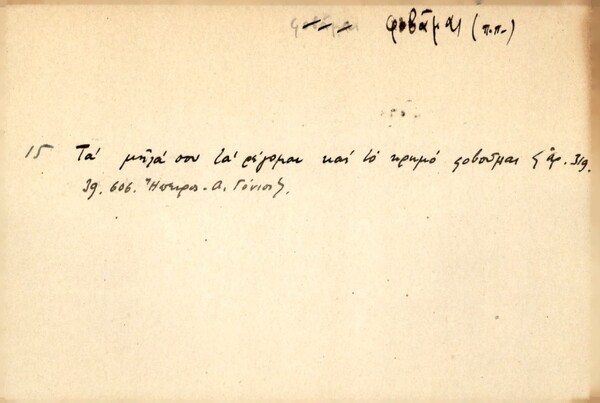 φοβᾶμαι (π.π.)
15 Τά μῆλά σου τά ρέγομαι καί τό κρημό φοβοῦμαι ἀρ. 319.
39. 606. Ἤπειρος - Δ. Γόνιος